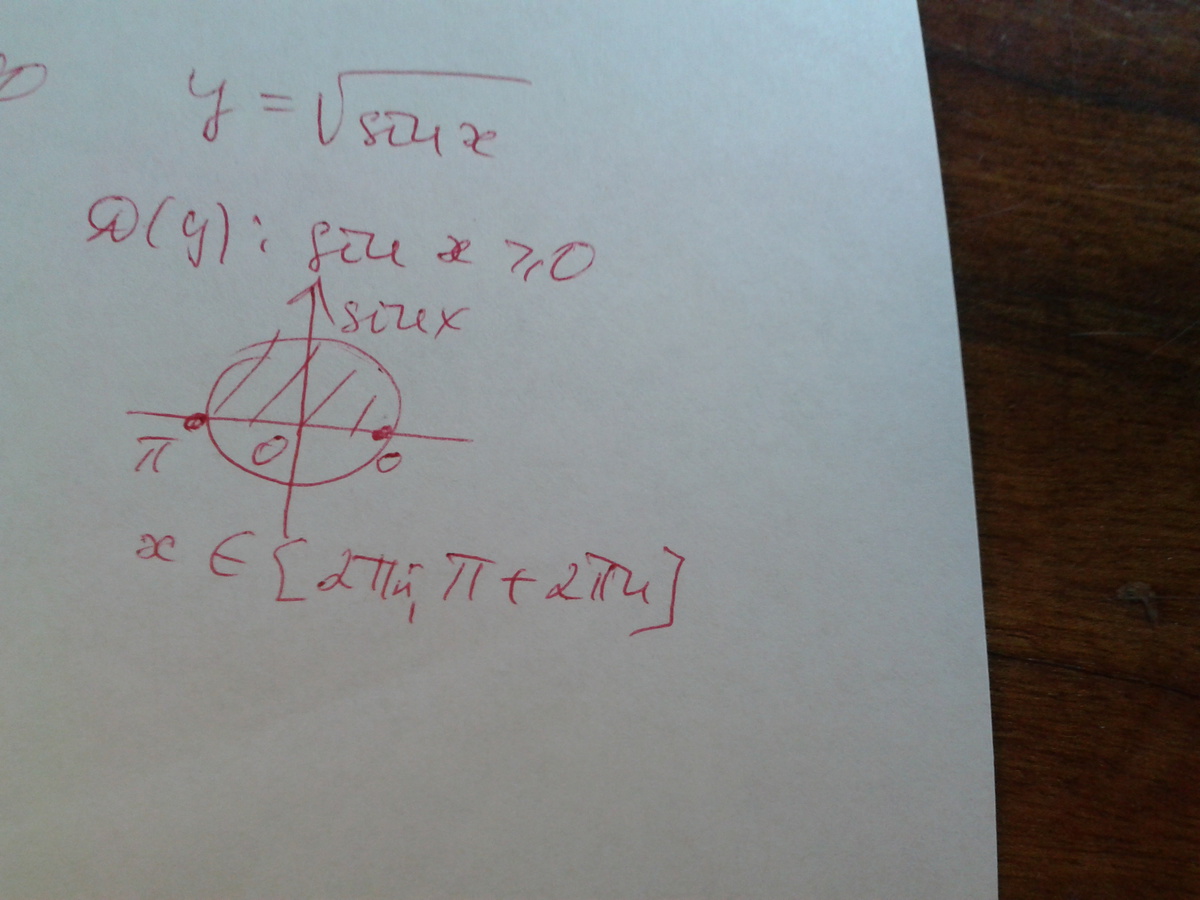 y = √sin x
D(y): sin x ≥ 0
sin x
π 0 0
x ∈ [2πn; π + 2πn]